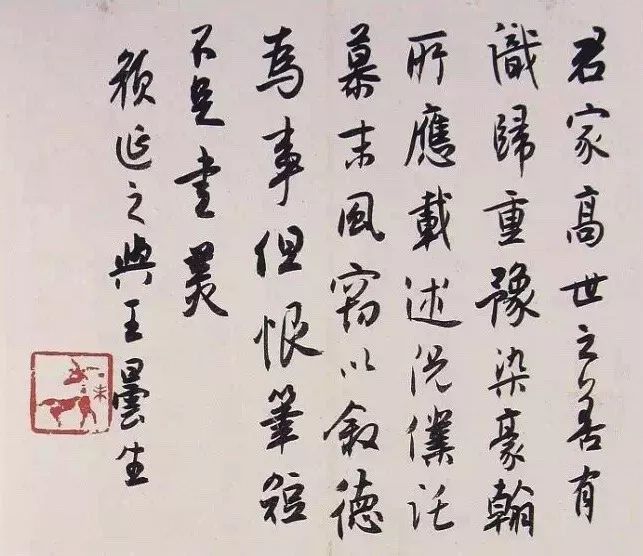 君家高世之善有
識歸重豫染豪翰
所應載述況僕託
慕末風竊以敘德
為事但恨筆短
不足書美
顏延之與王曇生